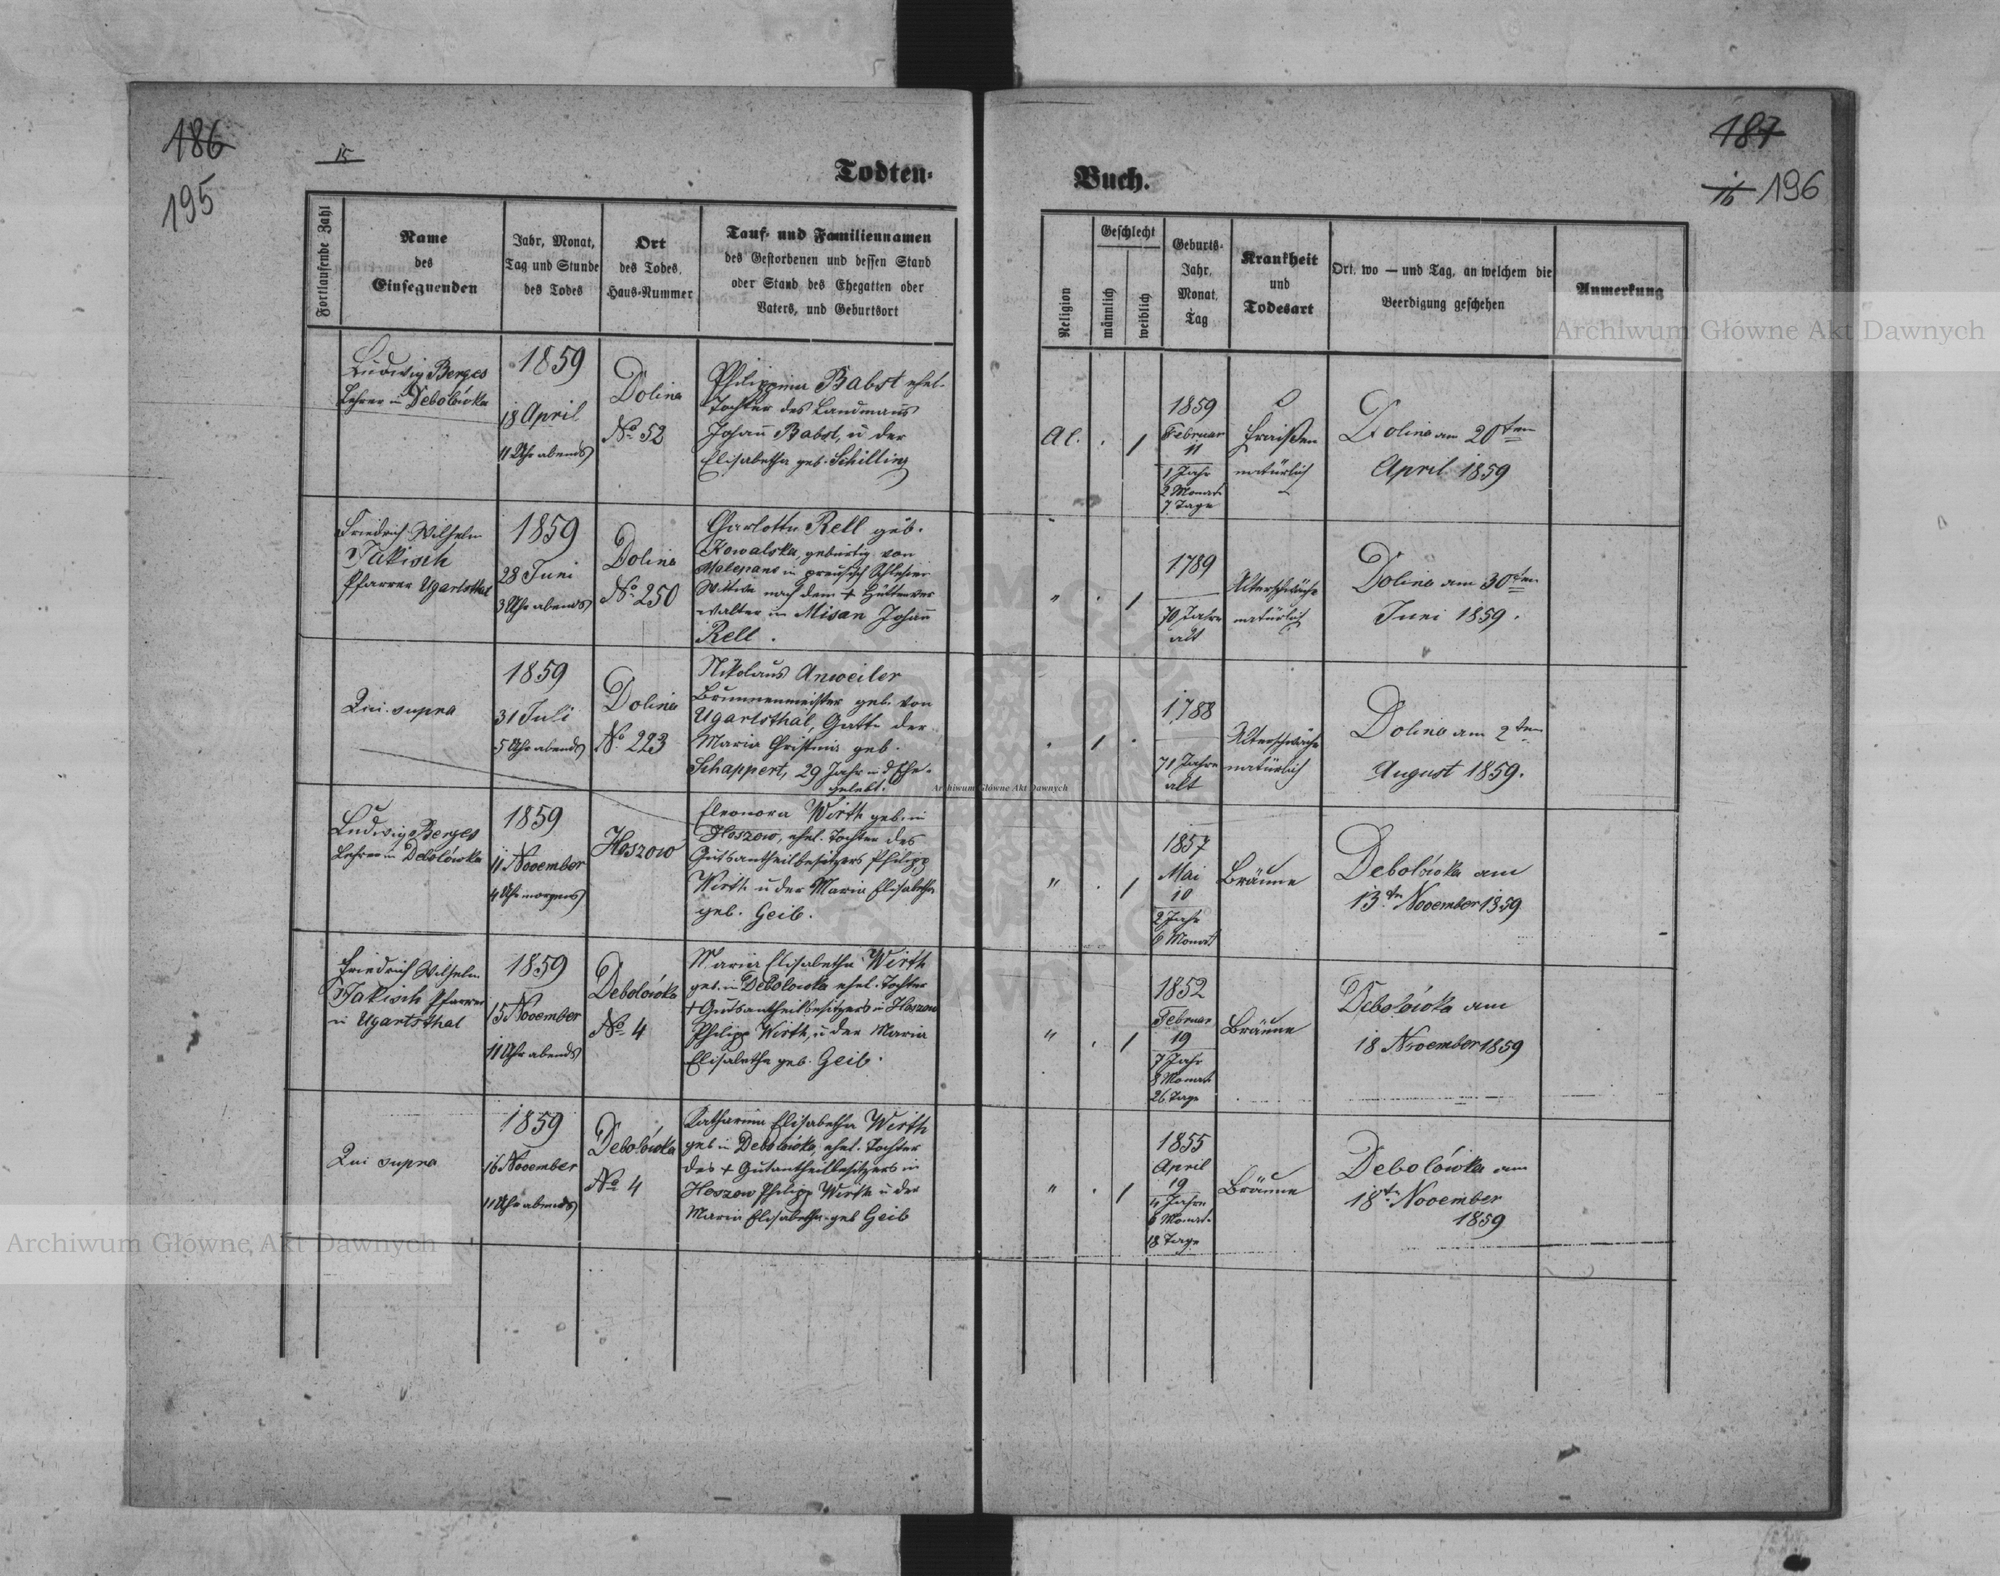 186
195
15
Todten-
Fortlaufende Zahl
Name
des
Einsegnenden
Jahr, Monat,
Tag und Stunde
des Todes
Ort
des Todes,
Haus-Nummer
Tauf- und Familiennamen
des Gestorbenen und dessen Stand
oder Stand des Ehegatten oder
Vaters, und Geburtsort
Ludwig Berges
Lehrer in Debolówka
1859
18 April
11 Uhr abends
Dolina
No. 52
Philippina Babst ehel.
Tochter des Landmanns
Johann Babst, u der
Elisabetha geb. Schilling
Friedrich Wilhelm
Jakisch
Pfarrer Ugartsthal
1859
28 Juni
3 Uhr abends
Dolina
No. 250
Charlotte Rell geb.
Kowalska, gebürtig von
Malepane in preusisch Schlesien
Wittwe nach dem + Hüttenver
walter in Misan Johann
Rell.
Qui supra
1859
31 Juli
5 Uhr abends
Dolina
No. 223
Nikolaus Anweiler
Brunnenmeister geb. von
Ugartsthal, Gatte der
Maria Christina geb.
Schappert, 29 Jahr in d Ehe
gelebt.
Ludwig Berges
Lehrer in Debolówka
1859
11 November
4 Uhr morgens
Hoszow
Eleonora Wirth geb. in
Hoszow, ehel. Tochter des
Gutsantheilbesitzers Philipp
Wirth u der Maria Elisabetha
geb. Geib.
Friedrich Wilhelm
Jakisch Pfarrer
in Ugartsthal
1859
15 November
11 Uhr abends
Debolówka
No. 4
Maria Elisabetha Wirth
geb. in Debolowka ehel. Tochter
+ Gutsantheilbesitzers in Hoszow
Philipp Wirth, u der Maria
Elisabetha geb. Geib.
Qui supra
1859
16 November
11 Uhr abends
Debolówka
No. 4
Katharina Elisabetha Wirth
geb in Debolówka, ehel. Tochter
des + Gutantheilbesitzers in
Hoszow Philipp Wirth u der
Maria Elisabetha geb Geib
187
16 196
Buch.
Religion
Geschlecht
männlich
weiblich
Geburts-
Jahr,
Monat,
Tag
Krankheit
und
Todesart
Ort, wo — und Tag, an welchem die
Beerdigung geschehen
Anmerkung
A C.
.
1
1859
Februar
11
1 Jahr
2 Monat
7 Tage
Fraißen
natürlich
Dolina am 20ten
April 1859
"
.
1
1789
70 Jahre
alt
Altersschwäche
natürlich
Dolina am 30ten
Juni 1859.
.
1
.
1788
71 Jahre
alt
Altersschwäche
natürlich
Dolina am 2ten
August 1859.
"
.
1
1857
Mai
10
2 Jahr
6 Monat
Bräune
Debolówka am
13ten November 1859
"
.
1
1852
Februar
19
7 Jahr
8 Monat
26 Tage
Bräune
Debolówka am
18 November 1859
"
.
1
1855
April
19
4 Jahre
6 Monat
18 Tage
Bräune
Debolówka am
18ten November
1859
Archiwum Główne Akt Dawnych
Archiwum Główne Akt Dawnych
Archiwum Główne Akt Dawnych